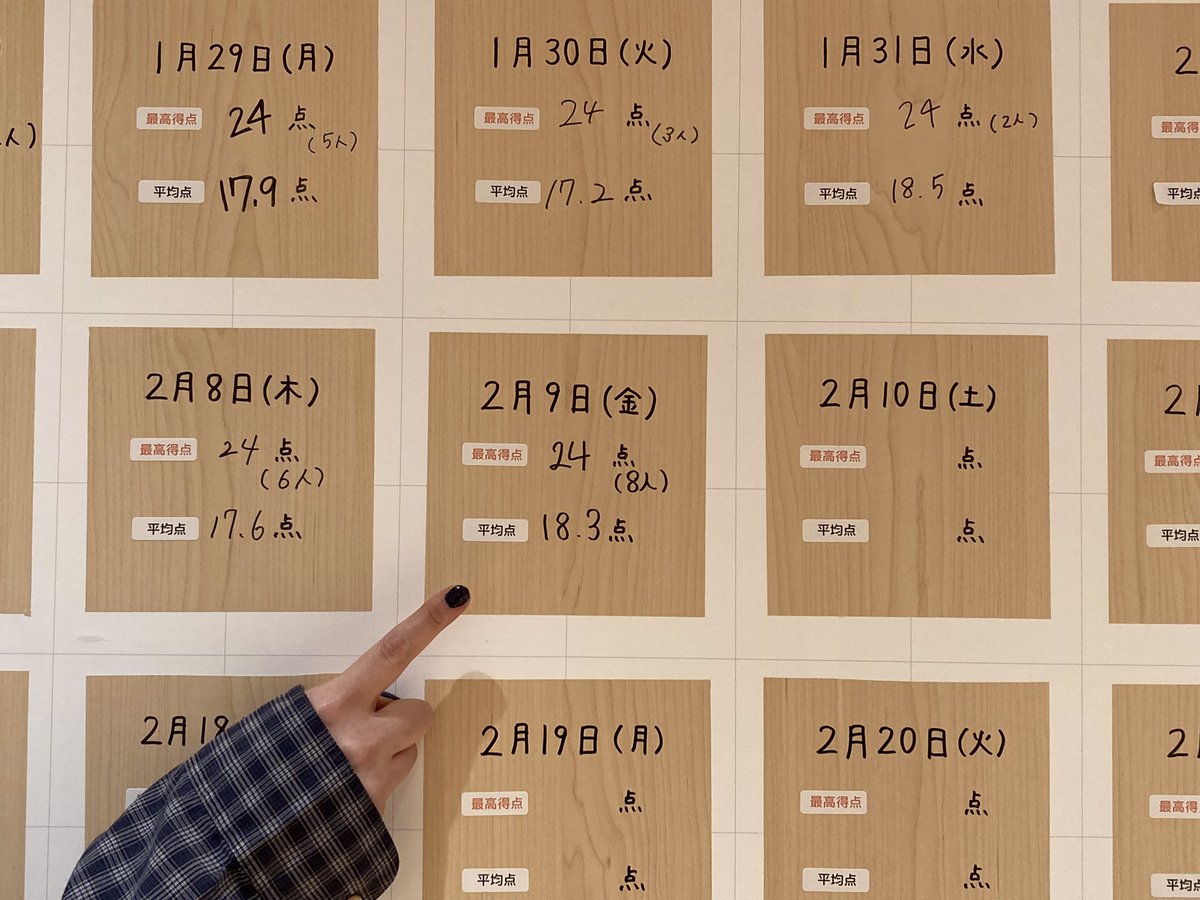 人)
1月29日(月)
最高得点 24点
(5人)
平均点 17.9点
1月30日(火)
最高得点 24点
(3人)
平均点 17.2点
1月31日(水)
最高得点 24点(2人)
平均点 18.5点
2
最高得
平均点
2月8日(木)
最高得点 24点
(6人)
平均点 17.6点
2月9日(金)
最高得点 24点
(8人)
平均点 18.3点
2月10日(土)
最高得点 点
平均点 点
2月
最高得点
平均点
2月18
2月19日(月)
最高得点 点
平均点 点
2月20日(火)
最高得点 点
平均点 点
2月
最高得
平均点